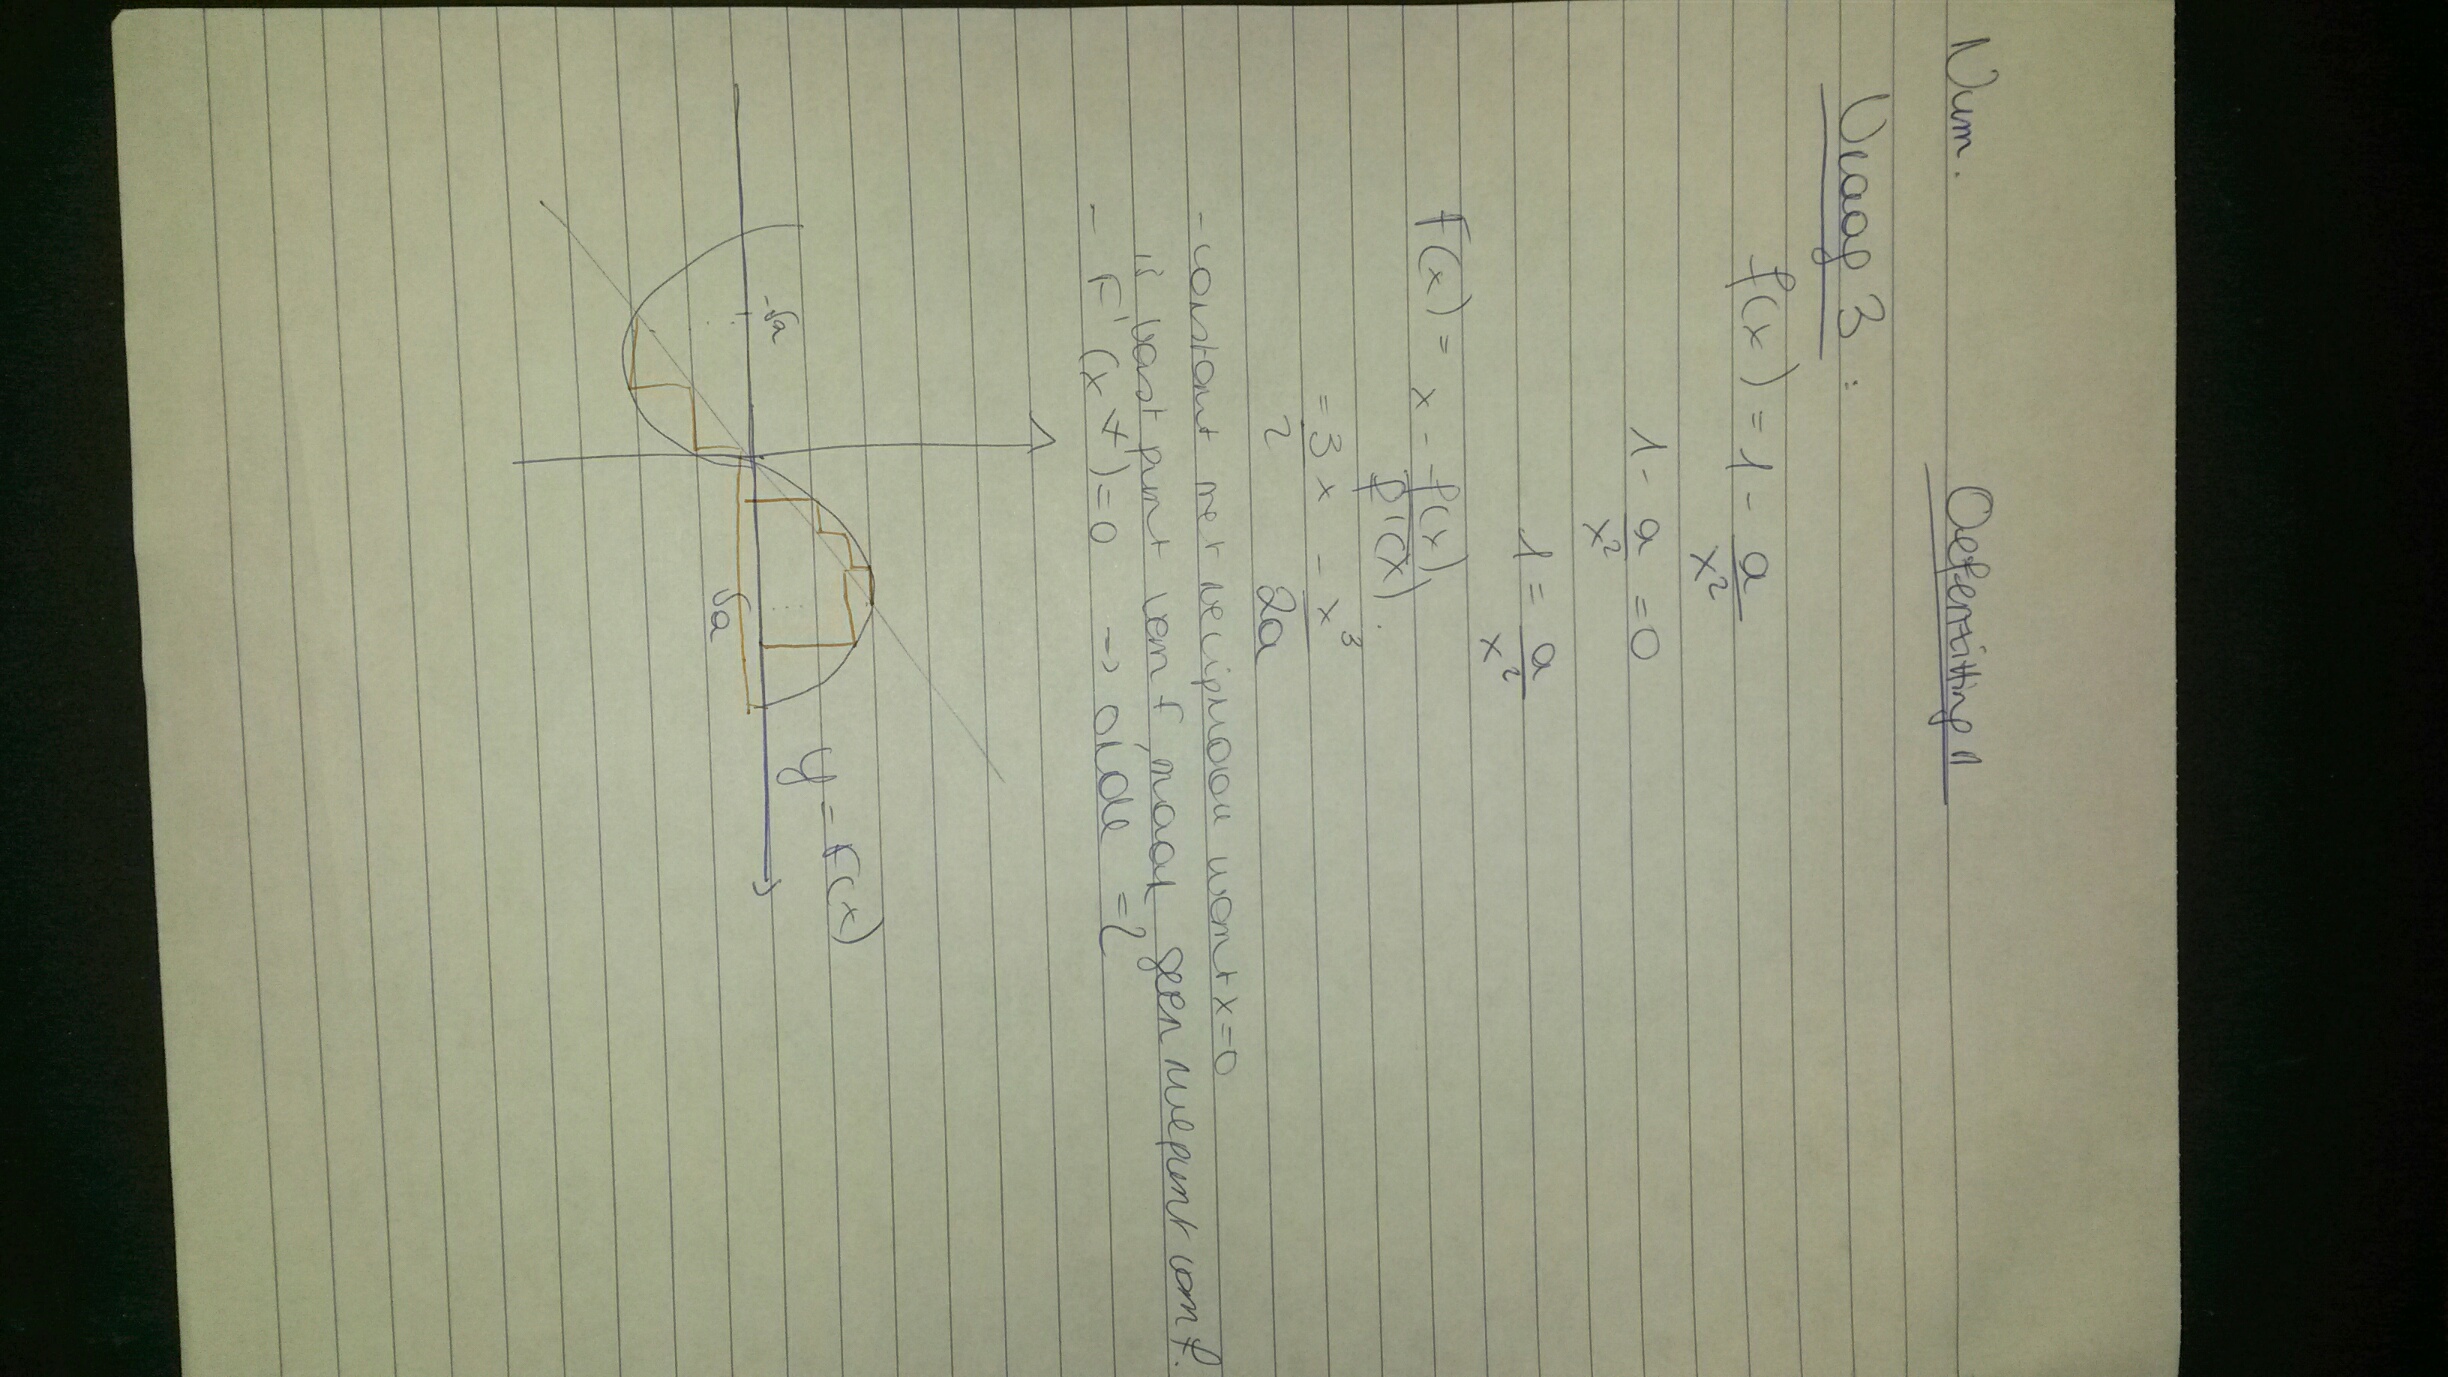 Num.
Oefenzitting 11
Vraag 3:
f(x) = 1 - a/x²
1 - a/x² = 0
1 = a/x²
F(x) = x - f(x)/f'(x).
= 3x/2 - x³/2a
- consistent niet reciprook want x=0
is vast punt van F, maar geen nulpunt van f.
- F'(x*)=0 → orde = 2
y = F(x)
-√a
√a